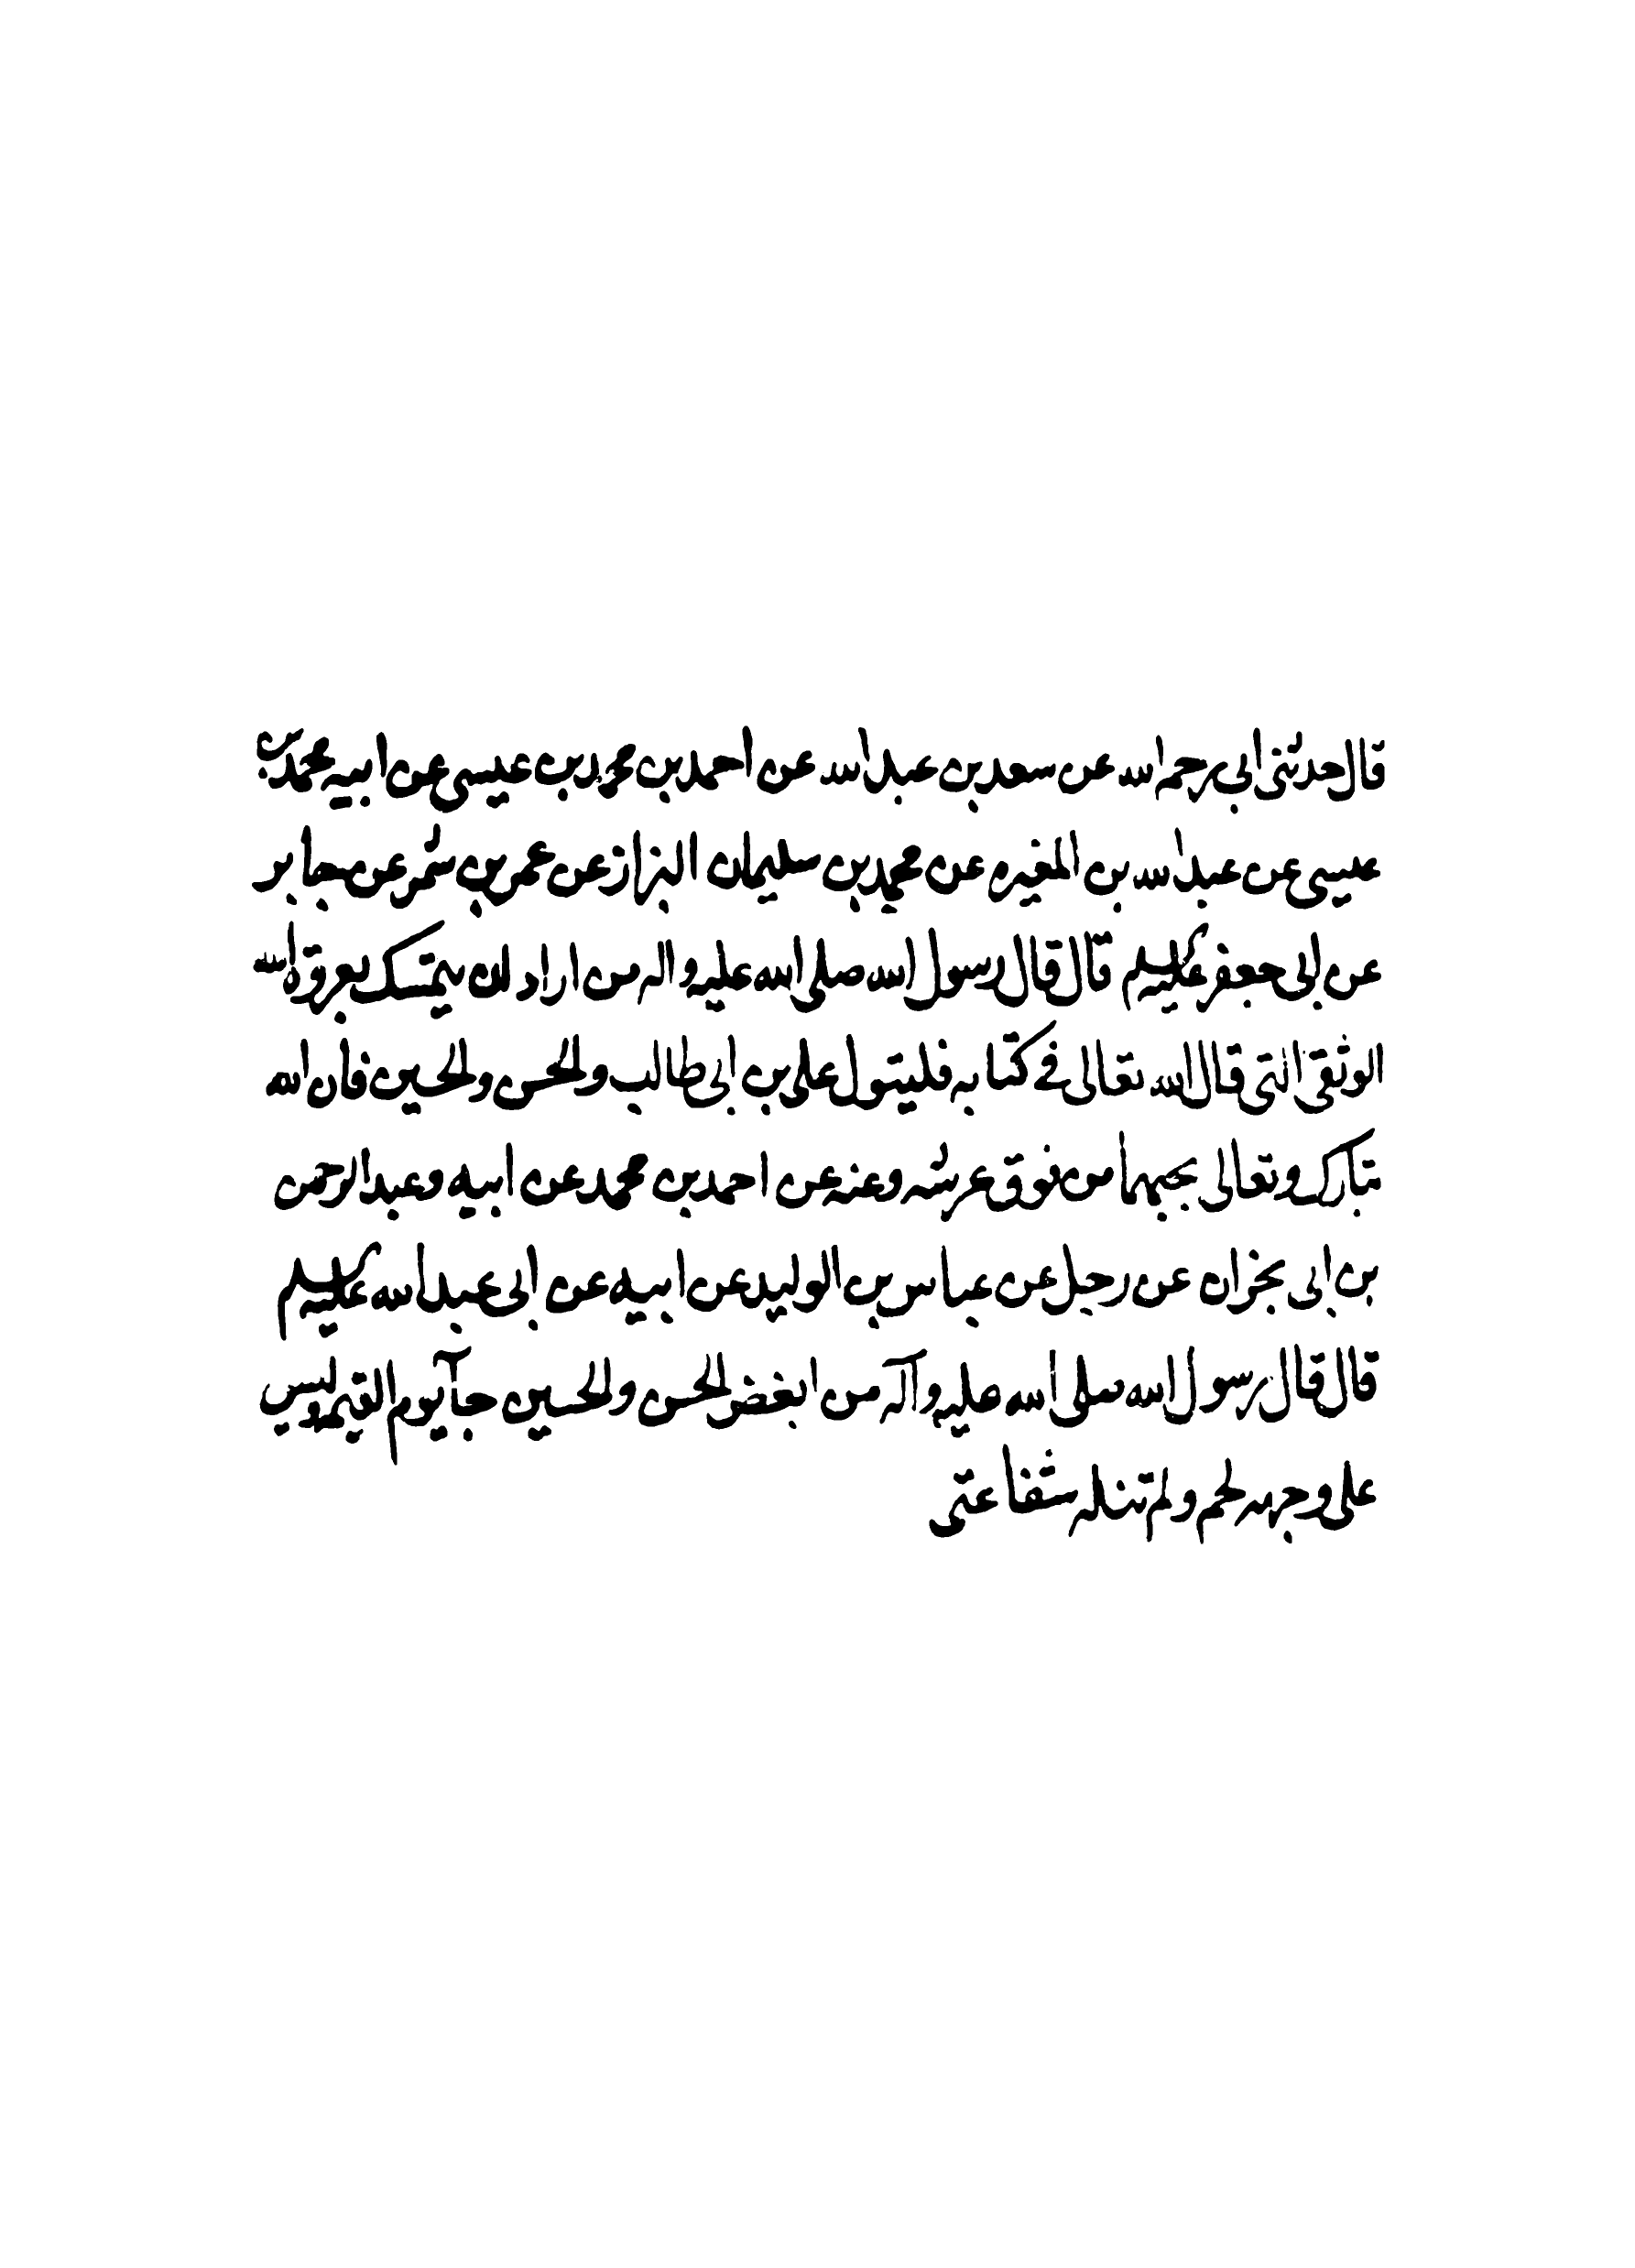 قال حدثنى ابى رحمه الله عن سعد بن عبد الله عن احمد بن محمد بن عيسى عن ابيه محمد بن
عيسى عن عبد الله بن المغيره عن محمد بن سليمان البزاز عن عمر بن شمر عن جابر
عن ابى جعفر عليه السلم قال قال رسول الله صلى الله عليه واله من اراد ان يتمسك بعروة الله
الوثقى التى قال الله تعالى فى كتابه فليتول على بن ابى طالب والحسن والحسين فان الله
تبارك وتعالى يحبهما من فوق عرشه وعنه عن احمد بن محمد عن ابيه وعبد الرحمن
بن ابى نجران عن رجل عن عباس بن الوليد عن ابيه عن ابى عبد الله عليه السلم
قال قال رسول الله صلى الله عليه وآله من ابغض الحسن والحسين جآ يوم القيمه وليس
على وجهه لحم ولم تنله شفاعتى